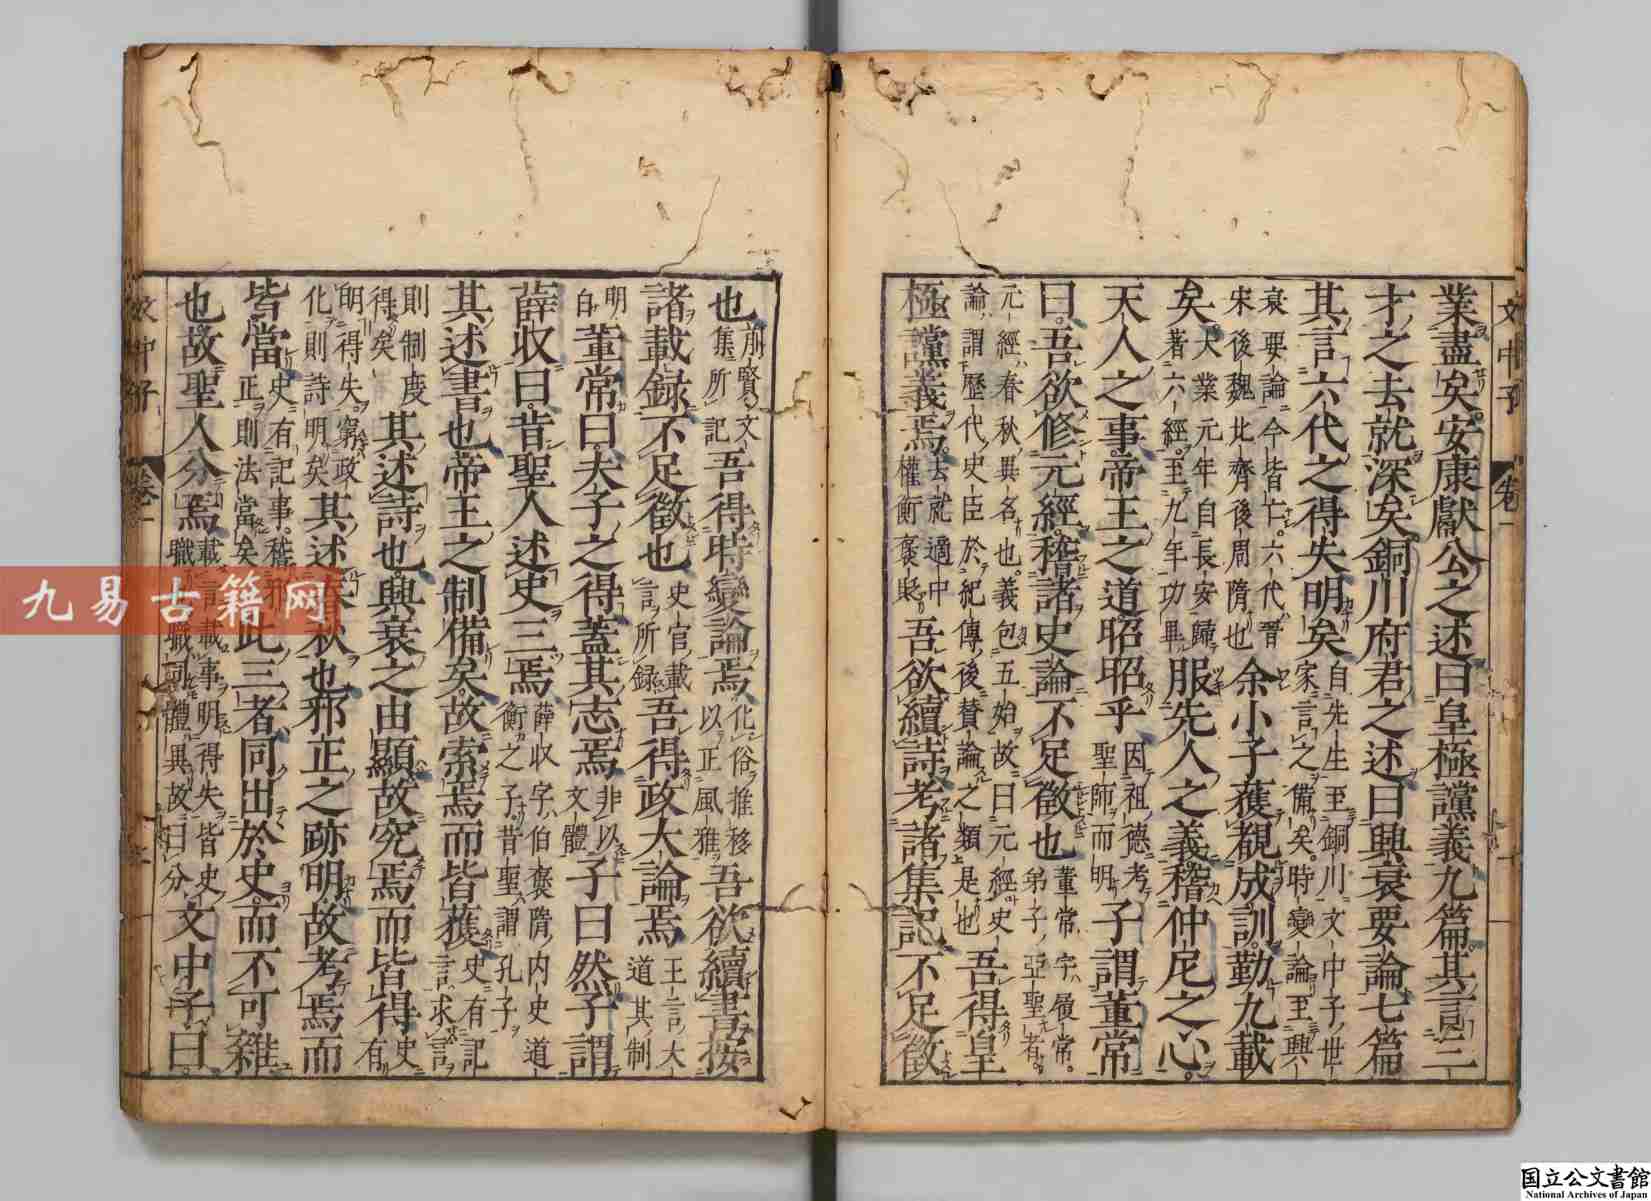 文中子 卷一
業盡矣安康獻公之述曰皇極讜義九篇其言三
才之去就深矣銅川府君之述曰興衰要論七篇
其言六代之得失明矣自先生至銅川文中子世家言之備矣時變論至興
衰要論今皆亡六代晉宋後魏北齊後周隋也余小子獲覩成訓勤九載
矣大業元年自長安歸著六經至九年功畢服先人之義稽仲尼之心
天人之事帝王之道昭昭乎因祖德考聖師而明子謂董常
曰吾欲修元經稽諸史論不足徵也董常字履常弟子亞聖者
元經春秋異名也義包五始故曰元經史論謂歷代史臣於紀傳後贊論之類是也吾得皇
極讜義焉去就適中權衡褒貶吾欲續詩考諸集記不足徵
也前賢文集所記吾得時變論焉化俗推移以正風雅吾欲續書按
諸載錄不足徵也史官載言所錄吾得政大論焉王言大道其制
明白董常曰夫子之得蓋其志焉非以文體子曰然子謂
薛收曰昔聖人述史三焉薛收字伯褒隋內史道衡之子昔聖謂孔子
其述書也帝王之制備矣故索焉而皆獲史有記言求言
則制度得矣其述詩也興衰之由顯故究焉而皆得史有
明得失窮政化則詩明矣其述春秋也邪正之跡明故考焉而
皆當史有記事稽邪正則法當矣此三者同出於史而不可雜
也故聖人分焉載言載事明得失皆史職職司體異故曰分文中子曰
文中子 卷一
九易古籍网
国立公文書館
National Archives of Japan